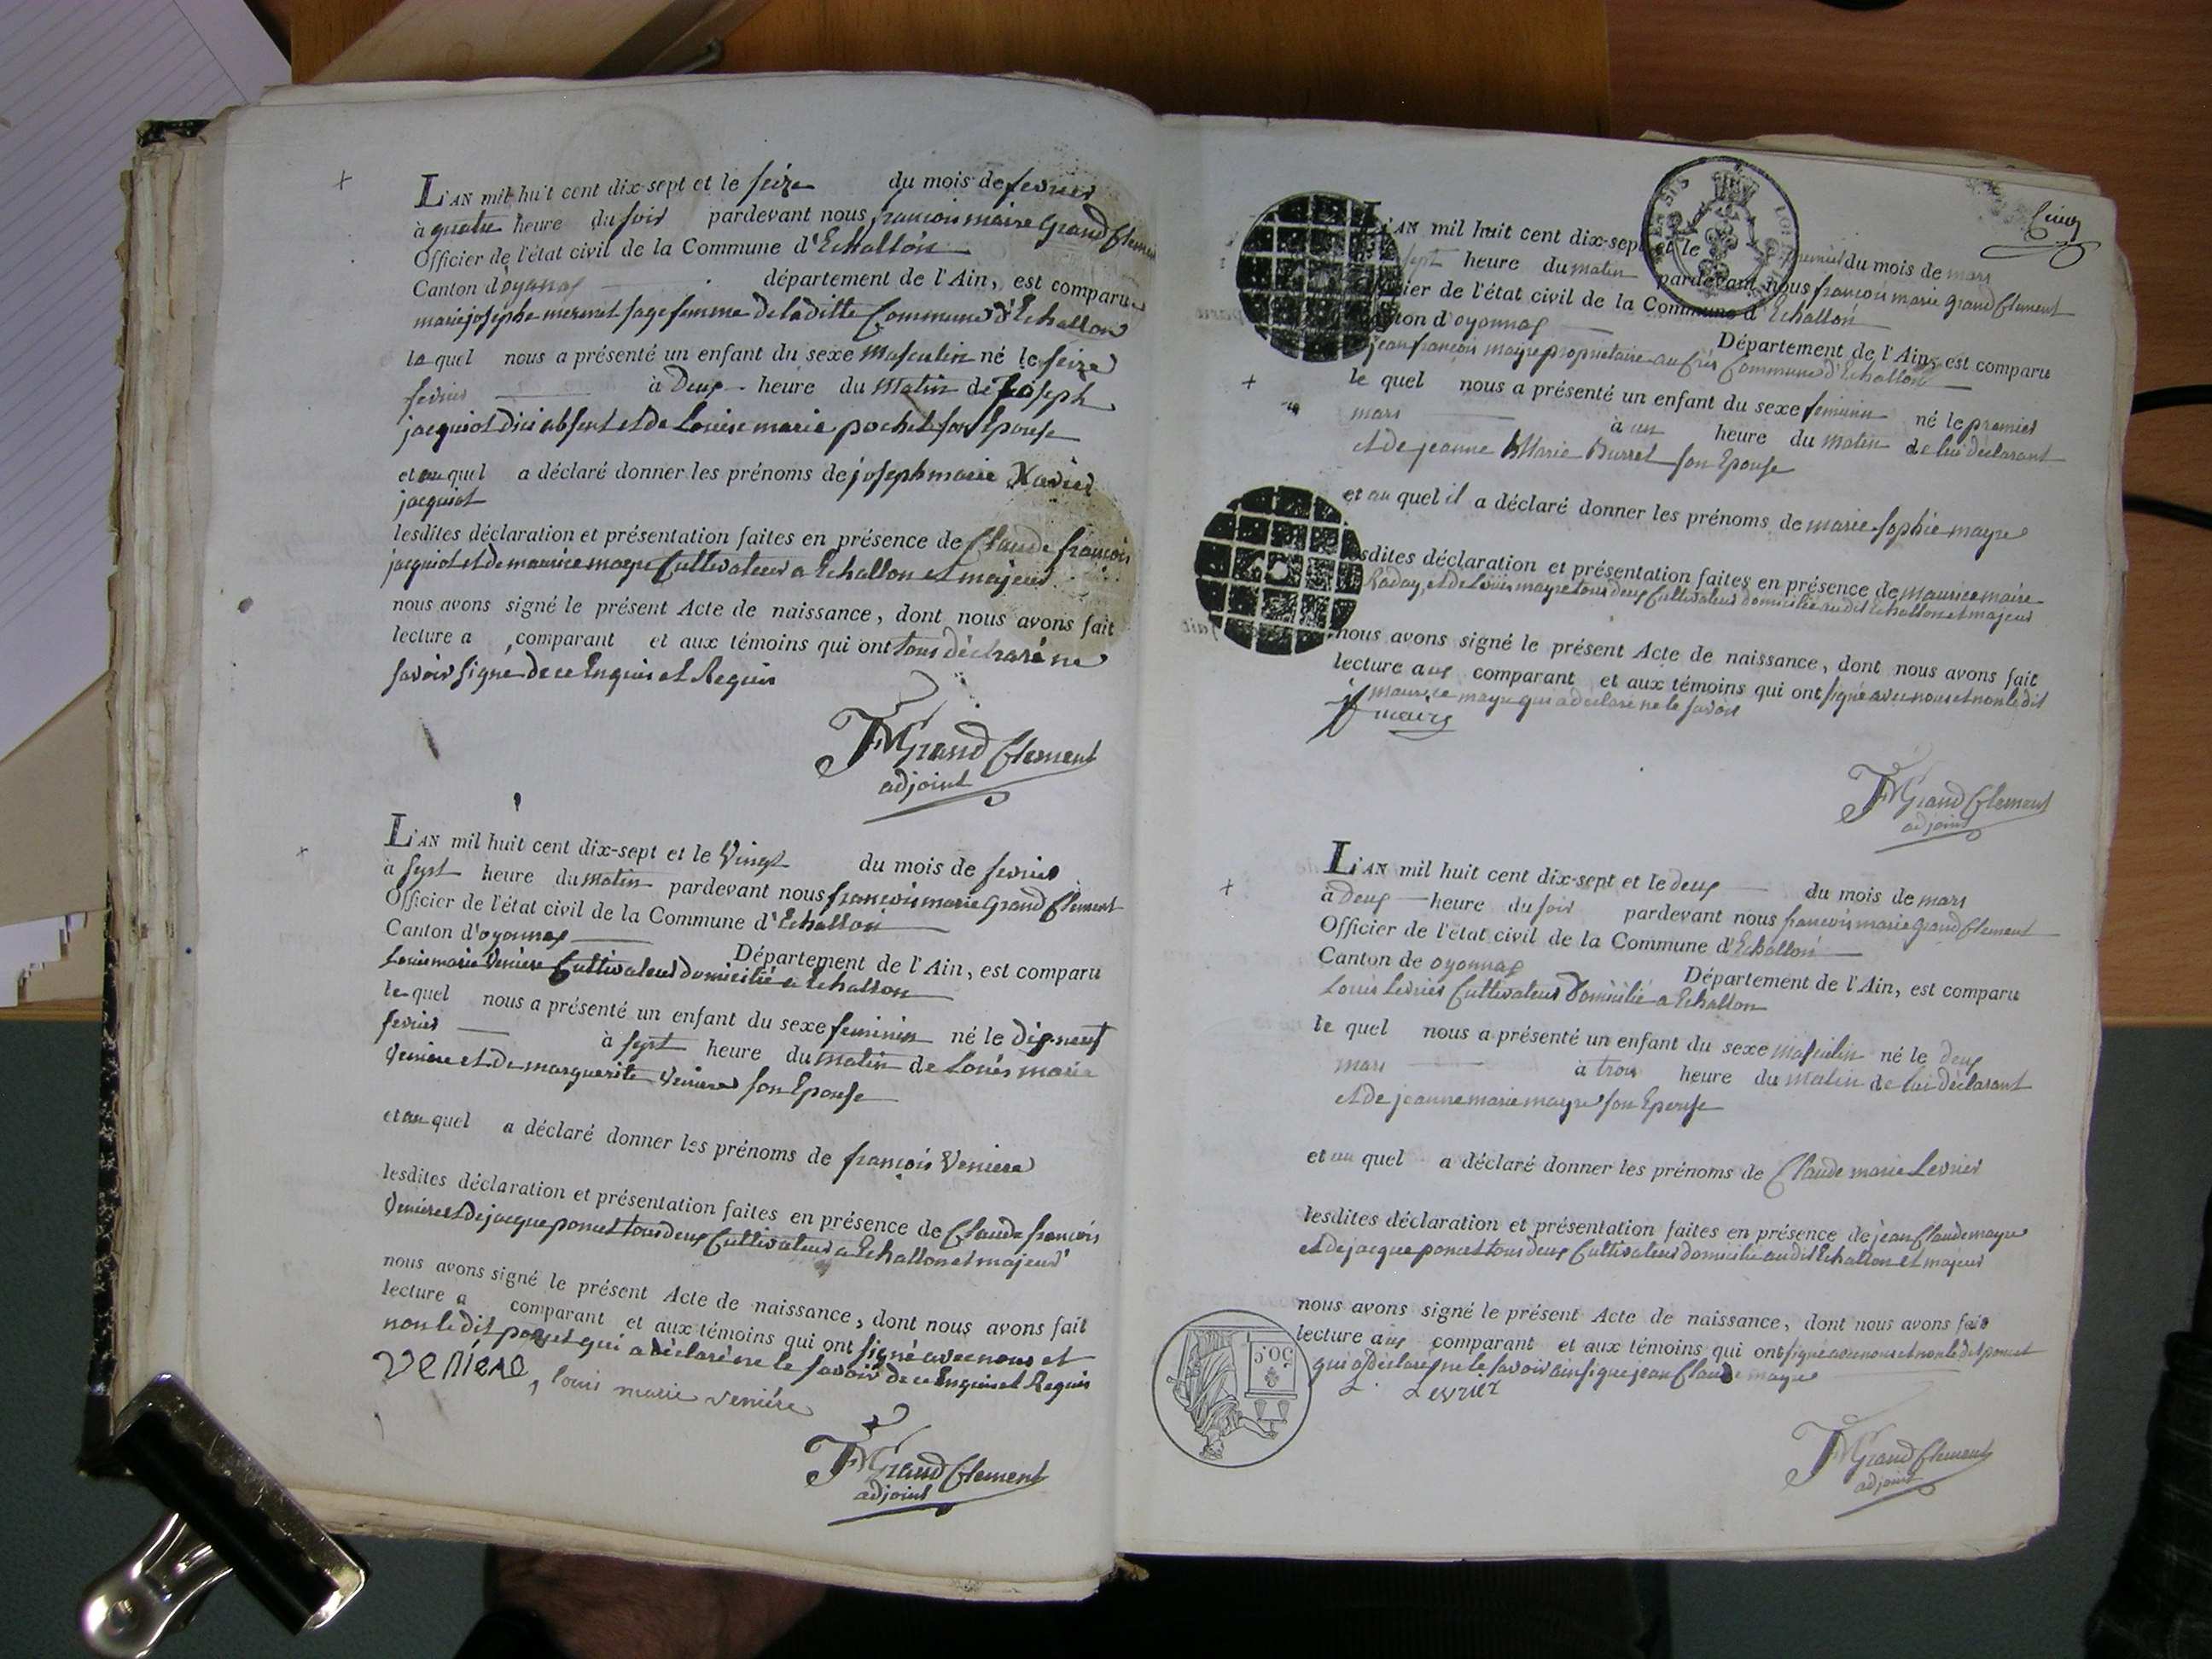 L'AN mil huit cent dix-sept et le seize du mois de fevrier
à quatre heure du soir pardevant nous francois maire Grand Clement
Officier de l'état civil de la Commune d'Echallon
Canton d'oyonnax département de l'Ain, est comparue
marie josephe mermet sage femme de la ditte Commune d'Echallon
la quel nous a présenté un enfant du sexe masculin né le seize
fevrier à Deux heure du matin de Joseph
jacquiot dici absent et de Louise marie pochet son Epouse
et au quel a déclaré donner les prénoms de joseph marie Xavier
jacquiot
lesdites déclaration et présentation faites en présence de Claude francois
jacquiot et de maurice mayre Cultivateur a Echallon et majeur
nous avons signé le présent Acte de naissance, dont nous avons fait
lecture a comparant et aux témoins qui ont tous déclaré ne
savoir signé de ce Enquis et Requis
FM Grand Clement
adjoint
L'AN mil huit cent dix-sept et le Vingt du mois de fevrier
à sept heure du matin pardevant nous francois marie Grand Clement
Officier de l'état civil de la Commune d'Echallon
Canton d'oyonnax Département de l'Ain, est comparu
Louis marie Veniere Cultivateur Domicilié a Echallon
le quel nous a présenté un enfant du sexe feminin né le dix neuf
fevrier à sept heure du matin de Louis marie
Veniere et de marguerite Veniere son Epouse
et au quel a déclaré donner les prénoms de françois Veniere
lesdites déclaration et présentation faites en présence de Claude francois
Veniere et De jacque poncet tous deux Cultivateur a Echallon et majeur
nous avons signé le présent Acte de naissance, dont nous avons fait
lecture a comparant et aux témoins qui ont signé avec nous et
non le dit poncet qui a déclaré ne le savoir de ce Enquis et Requis
louis marie veniére
FM Grand Clement
adjoint
L'AN mil huit cent dix-sept et le premier du mois de mars
sept heure du matin pardevant nous francois marie Grand Clement
Officier de l'état civil de la Commune d'Echallon
Canton d'oyonnax Département de l'Ain, est comparu
jean françois mayre proprietaire au Crés Commune d'Echallon
le quel nous a présenté un enfant du sexe feminin né le premier
mars à un heure du matin de lui déclarant
et de jeanne Marie Burret son Epouse
et au quel il a déclaré donner les prénoms de marie sophie mayre
lesdites déclaration et présentation faites en présence de maurice maire
et de Louis mayre tous deux Cultivateur domicilié au dit Echallon et majeur
nous avons signé le présent Acte de naissance, dont nous avons fait
lecture aux comparant et aux témoins qui ont signé avec nous et non le dit
maurice mayre qui a déclaré ne le savoir
maire
FM Grand Clement
adjoint
L'AN mil huit cent dix-sept et le deux du mois de mars
à Deux heure du soir pardevant nous francois marie Grand Clement
Officier de l'état civil de la Commune d'Echallon
Canton de oyonnax Département de l'Ain, est comparu
Louis Levrier Cultivateur Domicilié a Echallon
le quel nous a présenté un enfant du sexe masculin né le deux
mars à trois heure du matin de lui déclarant
et de jeanne marie mayre son Epouse
et au quel a déclaré donner les prénoms de Claude marie Levrier
lesdites déclaration et présentation faites en présence de jean Claude mayre
et de jacque poncet tous deux Cultivateur domicilié au dit Echallon et majeur
nous avons signé le présent Acte de naissance, dont nous avons fait
lecture aux comparant et aux témoins qui ont signé avec nous et non le dit poncet
qui a déclaré ne le savoir ainsi que jean Claude mayre
L. Levrier
50.C
FM Grand Clement
adjoint